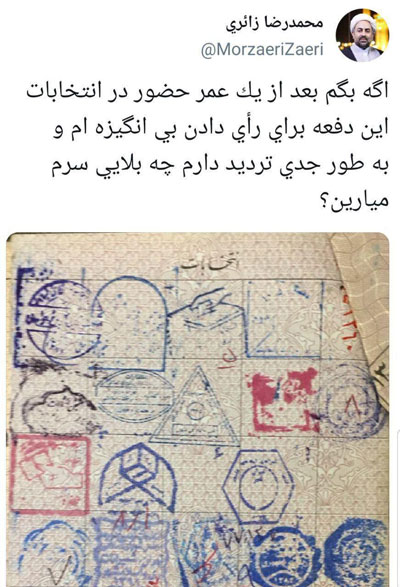 محمدرضا زائري
@MorzaeriZaeri
اگه بگم بعد از يك عمر حضور در انتخابات
اين دفعه براي رأي دادن بي انگيزه ام و
به طور جدي ترديد دارم چه بلايي سرم
ميارين؟
انتخابات